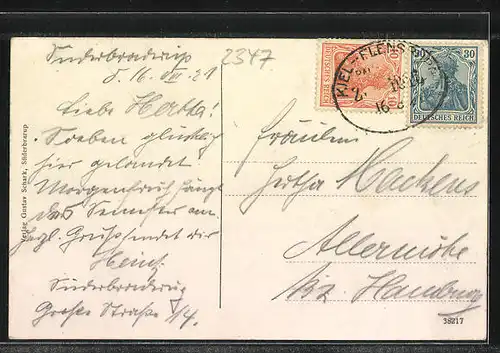 Süderbrarup
d. 16. VIII. 21
2347
Liebe Hertha!
Soeben glücklich
hier gelandet.
Morgen früh fängt
das Semester an.
Herzl. Grüße sendet dir
Heinz.
Süderbrarup
Große Straße 14.
Verlag Gustav Schark, Süderbrarup
KIEL-FLENSBURG
16 8
30
30
DEUTSCHES REICH
DEUTSCHES REICH
Fräulein
Hertha Mackens
Allermöhe
Bz. Hamburg
38217